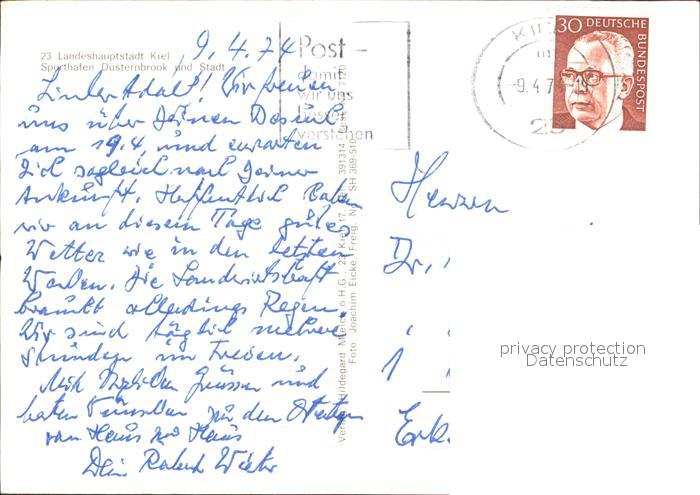 9. 4. 74
23 Landeshauptstadt Kiel
Sporthafen Düsternbrook und Stadt
Lieber Adolf! Wir freuen
uns über Deinen Besuch
am 19.4. und erwarten
Dich sogleich nach Deiner
Ankunft. Hoffentlich haben
wir an diesem Tage gutes
Wetter wie in den letzten
Wochen. Die Landwirtschaft
braucht allerdings Regen.
Wir sind täglich mehrere
Stunden im Freien.
Mit herzlichen Grüssen und
besten Wünschen zu den Ostertagen
von Haus zu Haus
Dein Robert
Post-
damit
wir uns
besser
verstehen
KIEL
-9.4.7
23
30 DEUTSCHE BUNDESPOST
Foto: Joachim Eicke, Freig. Nr. SH 369-510
Herrn
Dr.
1
Erk
privacy protection
Datenschutz